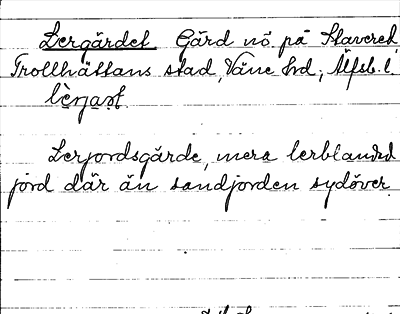 Lergärdet Gärd nö. på Stavered,
Trollhättans stad, Väne hd., Älfsb. l.
Lerjordsgärde, mera lerblandad
jord där än sandjorden sydöver.